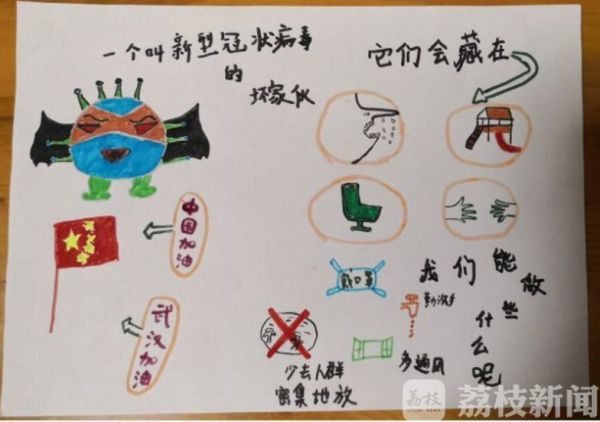 一个叫新型冠状病毒
的
坏家伙
它们会藏在
中国加油
武汉加油
我们能做
些什么呢
戴口罩
勤洗手
多通风
少去人群
密集地放
荔枝
荔枝新闻